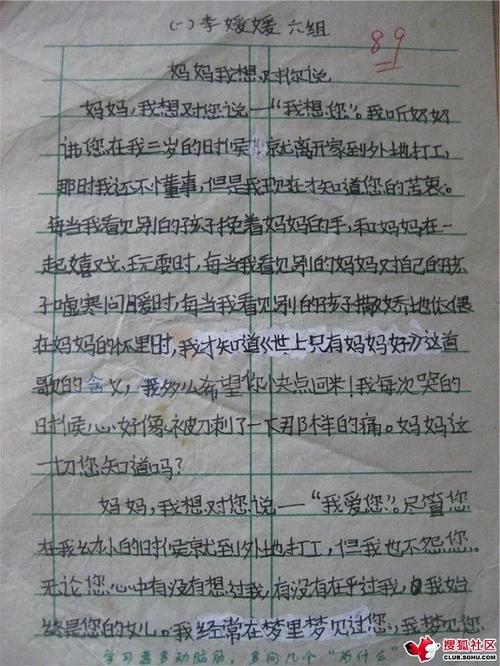 (一) 李媛媛 六组
89
妈妈我想对你说
妈妈，我想对您说——“我想您”。我听奶奶
讲您在我三岁的时候就离开家到外地打工，
那时我还不懂事，但是我现在才知道您的苦衷。
每当我看见别的孩子挽着妈妈的手，和妈妈在一
起嬉戏、玩耍时，每当我看见别的妈妈对自己的孩
子嘘寒问暖时，每当我看见别的孩子撒娇地依偎
在妈妈的怀里时，我才知道《世上只有妈妈好》这首
歌的含义，我多么希望你快点回来！我每次哭的
时候心好像被刀刺了一下那样的痛。妈妈这
一切您知道吗？
妈妈，我想对您说——“我爱您”。尽管您
在我幼小的时候就到外地打工，但我也不怨您。
无论您心中有没有想过我，有没有在乎过我，我始
终是您的女儿。我经常在梦里梦见过您，我梦见您
学习要多动脑筋，多问几个“为什么”
搜狐社区
CLUB.SOHU.COM